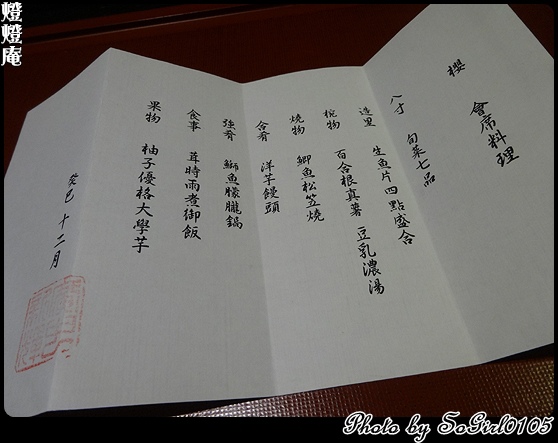 燈燈庵
櫻 會席料理
八寸 旬菜七品
造里 生魚片四點盛合
椀物 百合根真薯 豆乳濃湯
燒物 鯽魚松笠燒
合肴 洋芋饅頭
強肴 鰤魚朦朧鍋
食事 茸時雨煮御飯
果物 柚子優格大學芋
癸巳 十二月
Photo by SoGirl0105